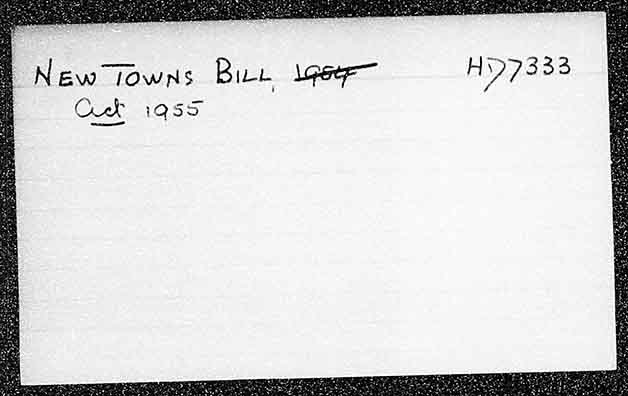 NEW TOWNS BILL, 1954 HD7333
Act 1955